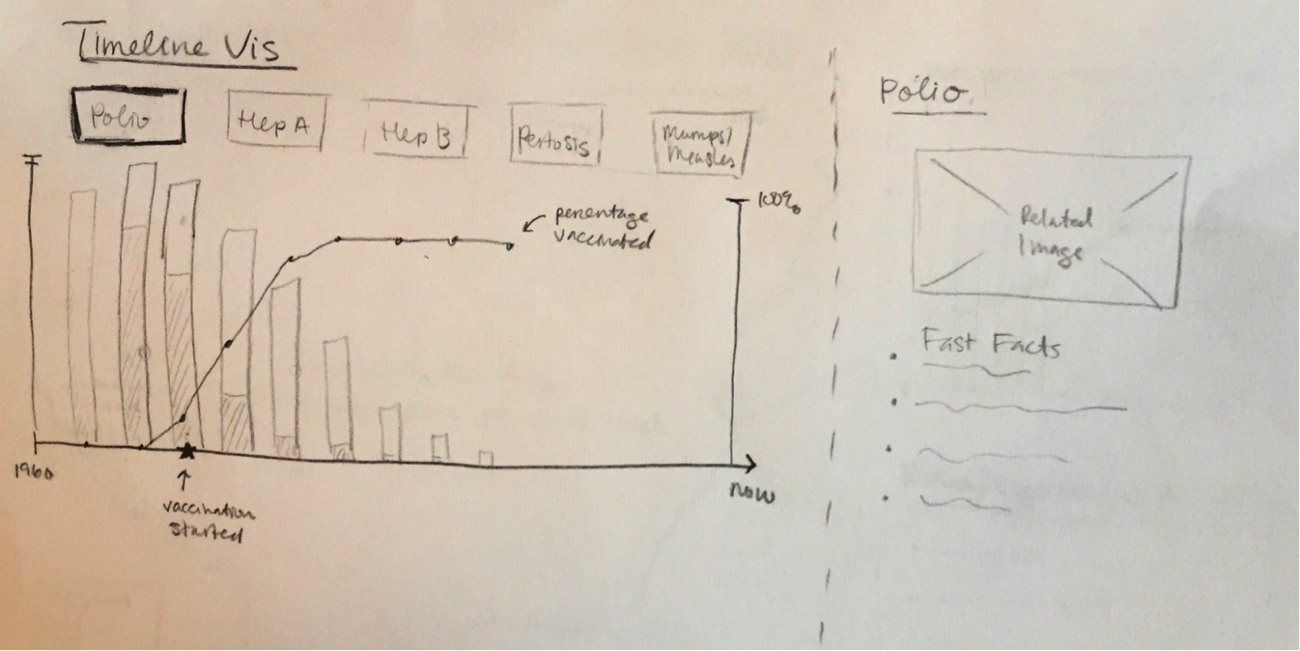 Timeline Vis
Polio
Hep A
Hep B
Pertosis
Mumps/
Measles
100%
percentage
vaccinated
1960
now
vaccination
started
Polio
Related
Image
Fast Facts